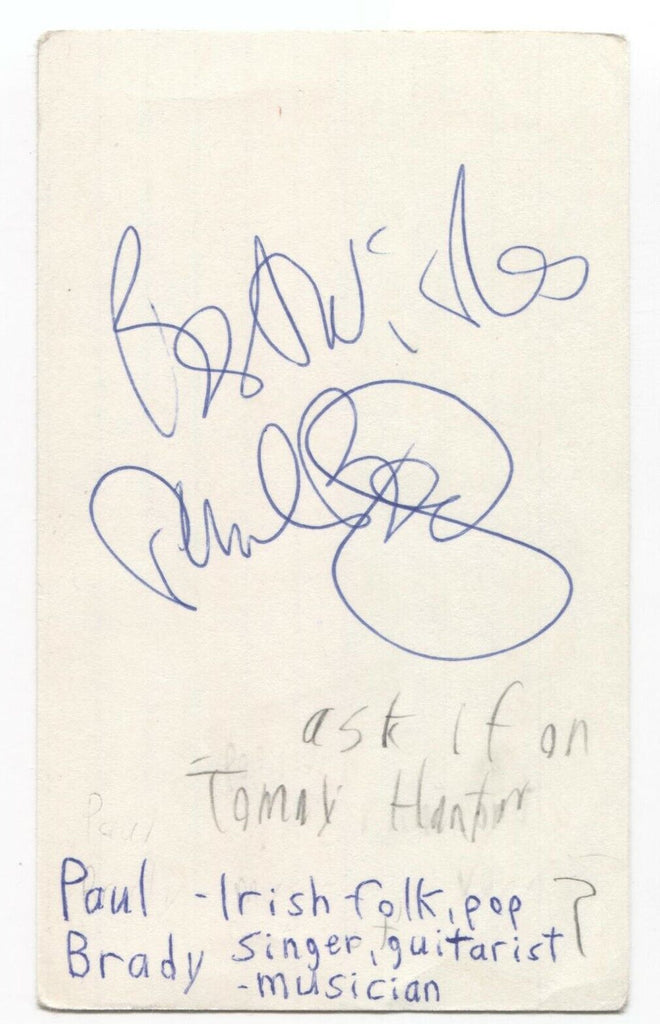 Best Wishes
Paul Brady
ask if on
Tommy
Paul - Irish folk, pop ?
Brady singer, guitarist
- musician